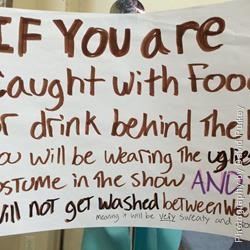 IF YOU are
caught with Food
or drink behind the
you will be wearing the ugle
costume in the show AND
will not get washed between
meaning it will be very sweaty and